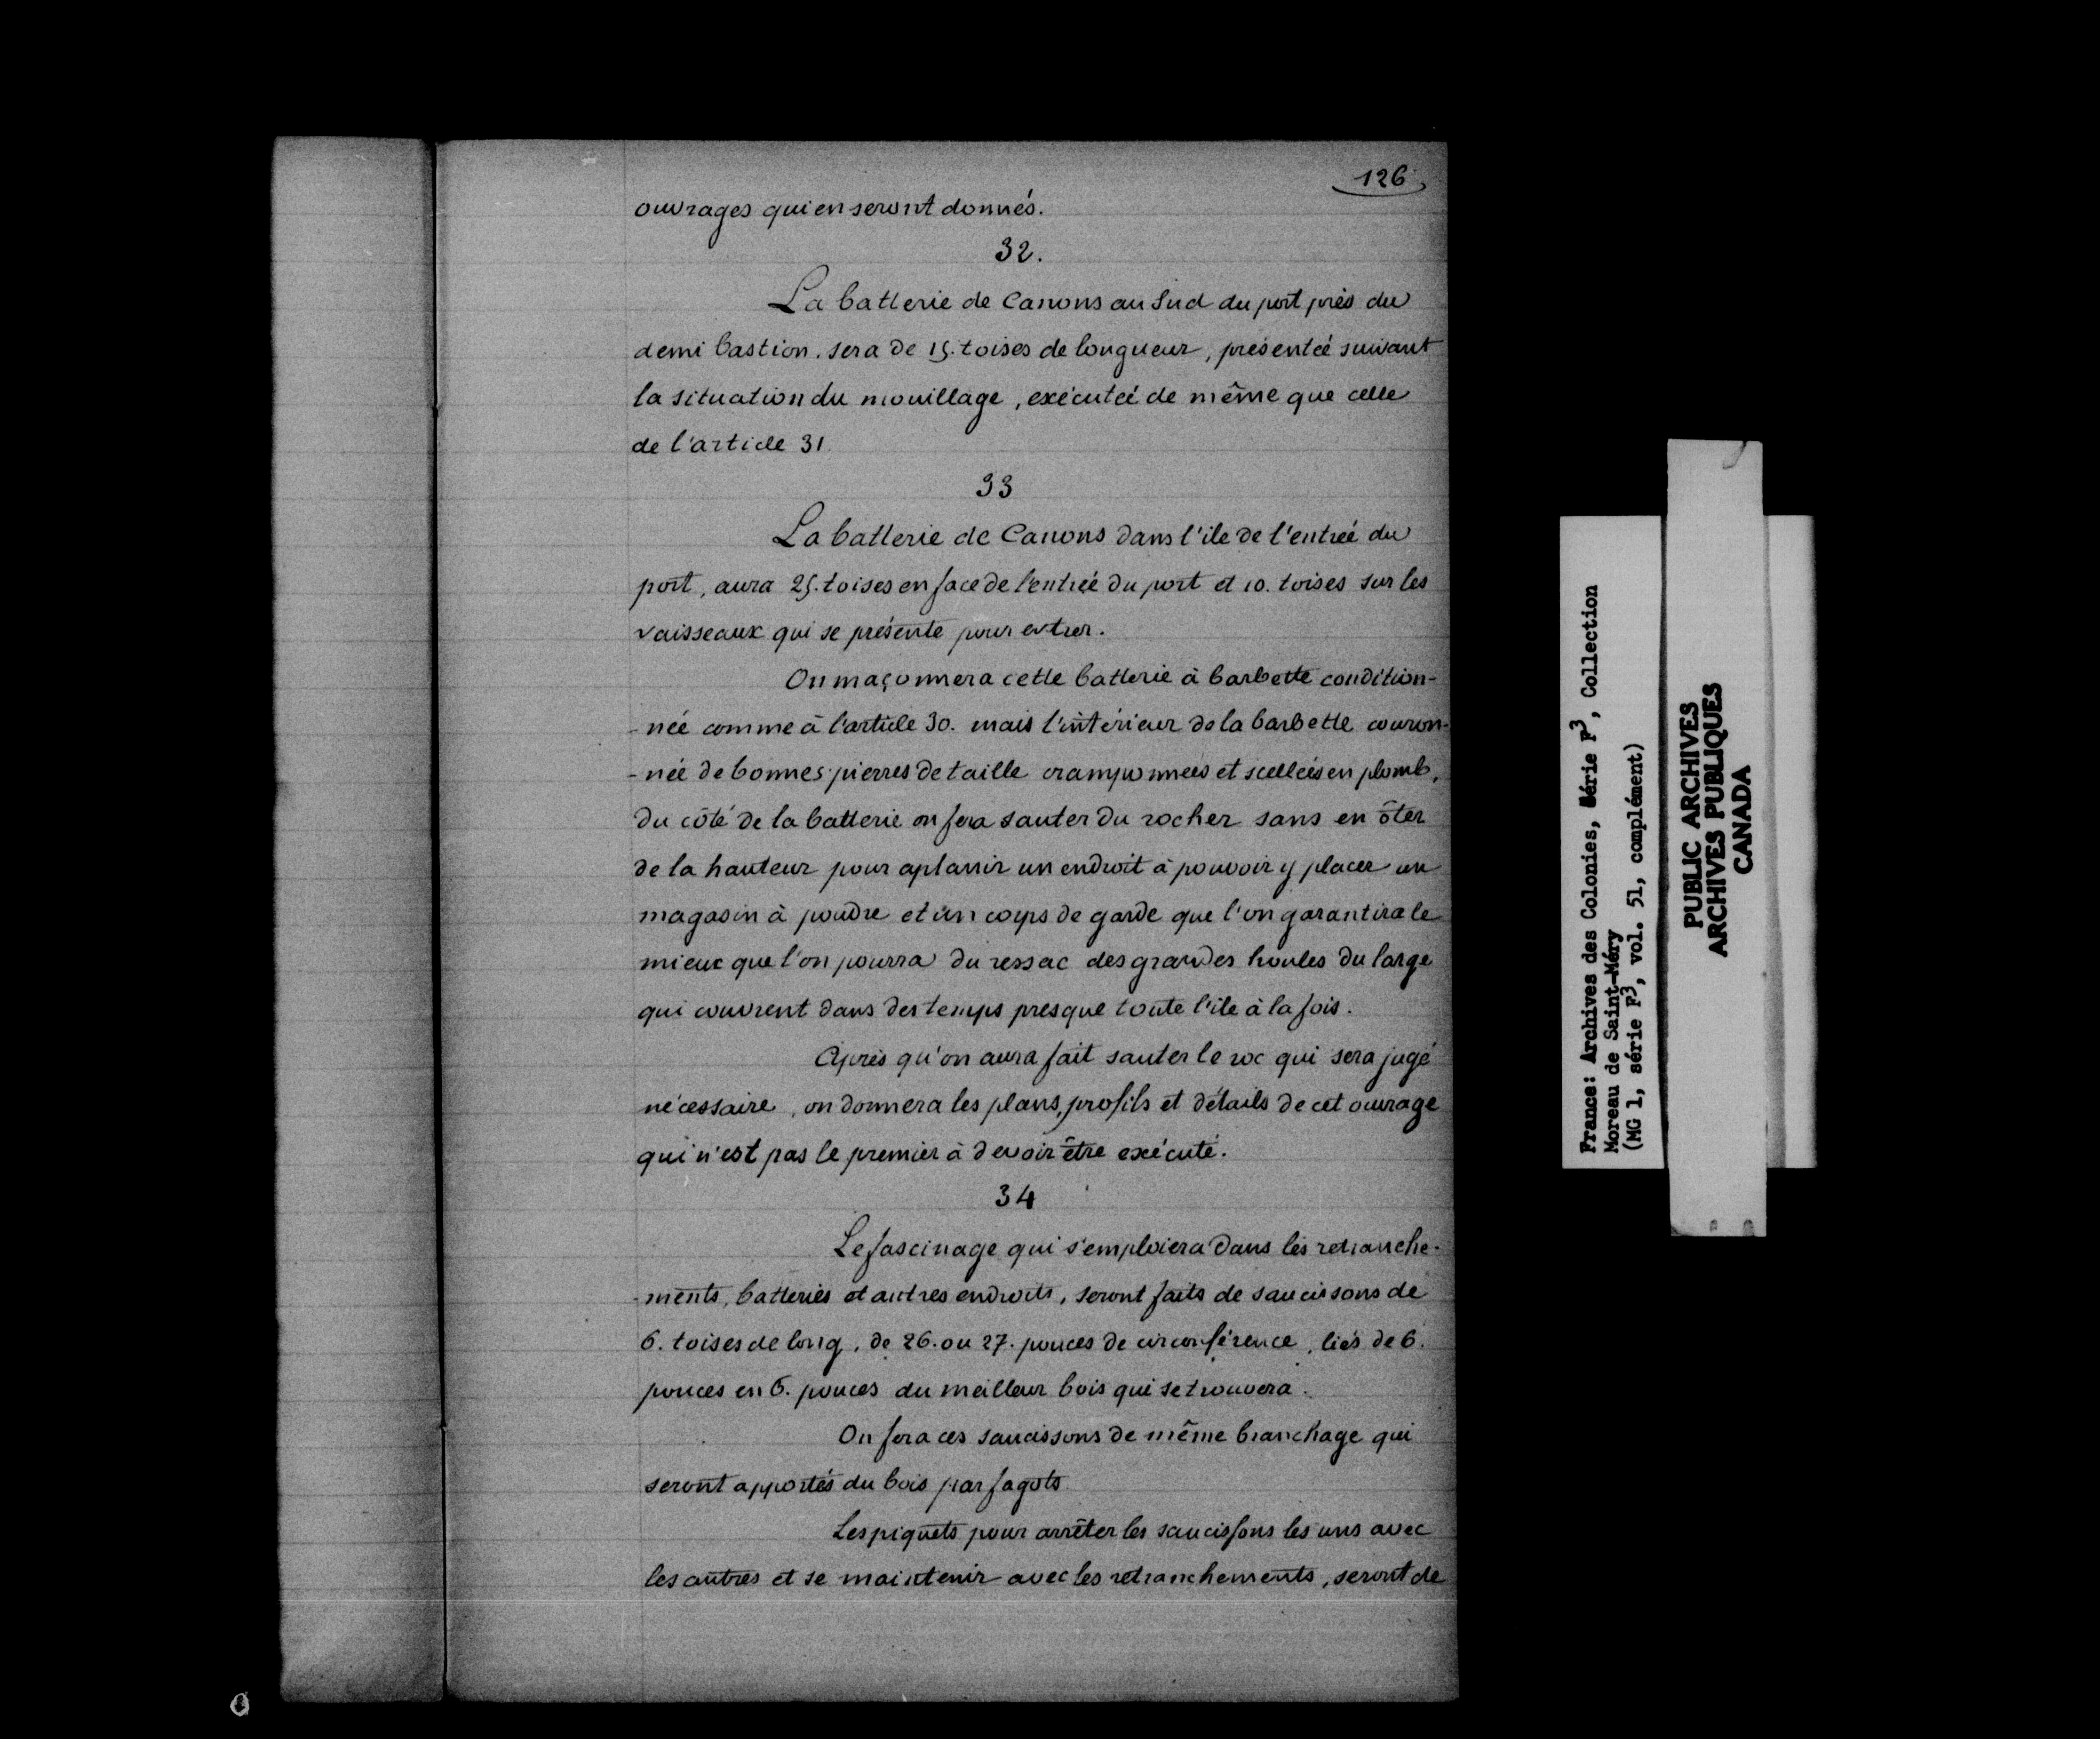 126
ouvrages qui en seront donnés.
32.
La batterie de Canons au Sud du port près du
demi bastion. sera de 15. toises de longueur, présentée suivant
la situation du mouillage, exécutée de même que celle
de l'article 31
33
La batterie de Canons dans l'ile de l'entrée du
port, aura 25. toises en face de l'entrée du port et 10. toises sur les
vaisseaux qui se présente pour entrer.
On maçonnera cette batterie à barbette condition-
-née comme à l'article 30. mais l'intérieur de la barbette couron-
-née de bonnes pierres de taille cramponnées et scellées en plomb,
du côté de la batterie on fera sauter du rocher sans en ôter
de la hauteur pour aplanir un endroit à pouvoir y placer un
magasin à poudre et un corps de garde que l'on garantira le
mieux que l'on pourra du ressac des grandes houles du large
qui couvrent dans des temps presque toute l'ile à la fois.
Après qu'on aura fait sauter le roc qui sera jugé
nécessaire, on donnera les plans, profils et détails de cet ouvrage
qui n'est pas le premier à devoir être exécuté.
34
Le fascinage qui s'emploiera dans les retranche-
-ments, batteries et autres endroits, seront faits de saucissons de
6. toises de long, de 26. ou 27. pouces de circonférence, liés de 6.
pouces en 6. pouces du meilleur bois qui se trouvera.
On fera ces saucissons de même branchage qui
seront apportés du bois par fagots
Les piquets pour arrêter les saucissons les uns avec
les autres et se maintenir avec les retranchements, seront de
France: Archives des Colonies, Série F3, Collection
Moreau de Saint-Méry
(MG 1, série F3, vol. 51, complément)
PUBLIC ARCHIVES
ARCHIVES PUBLIQUES
CANADA